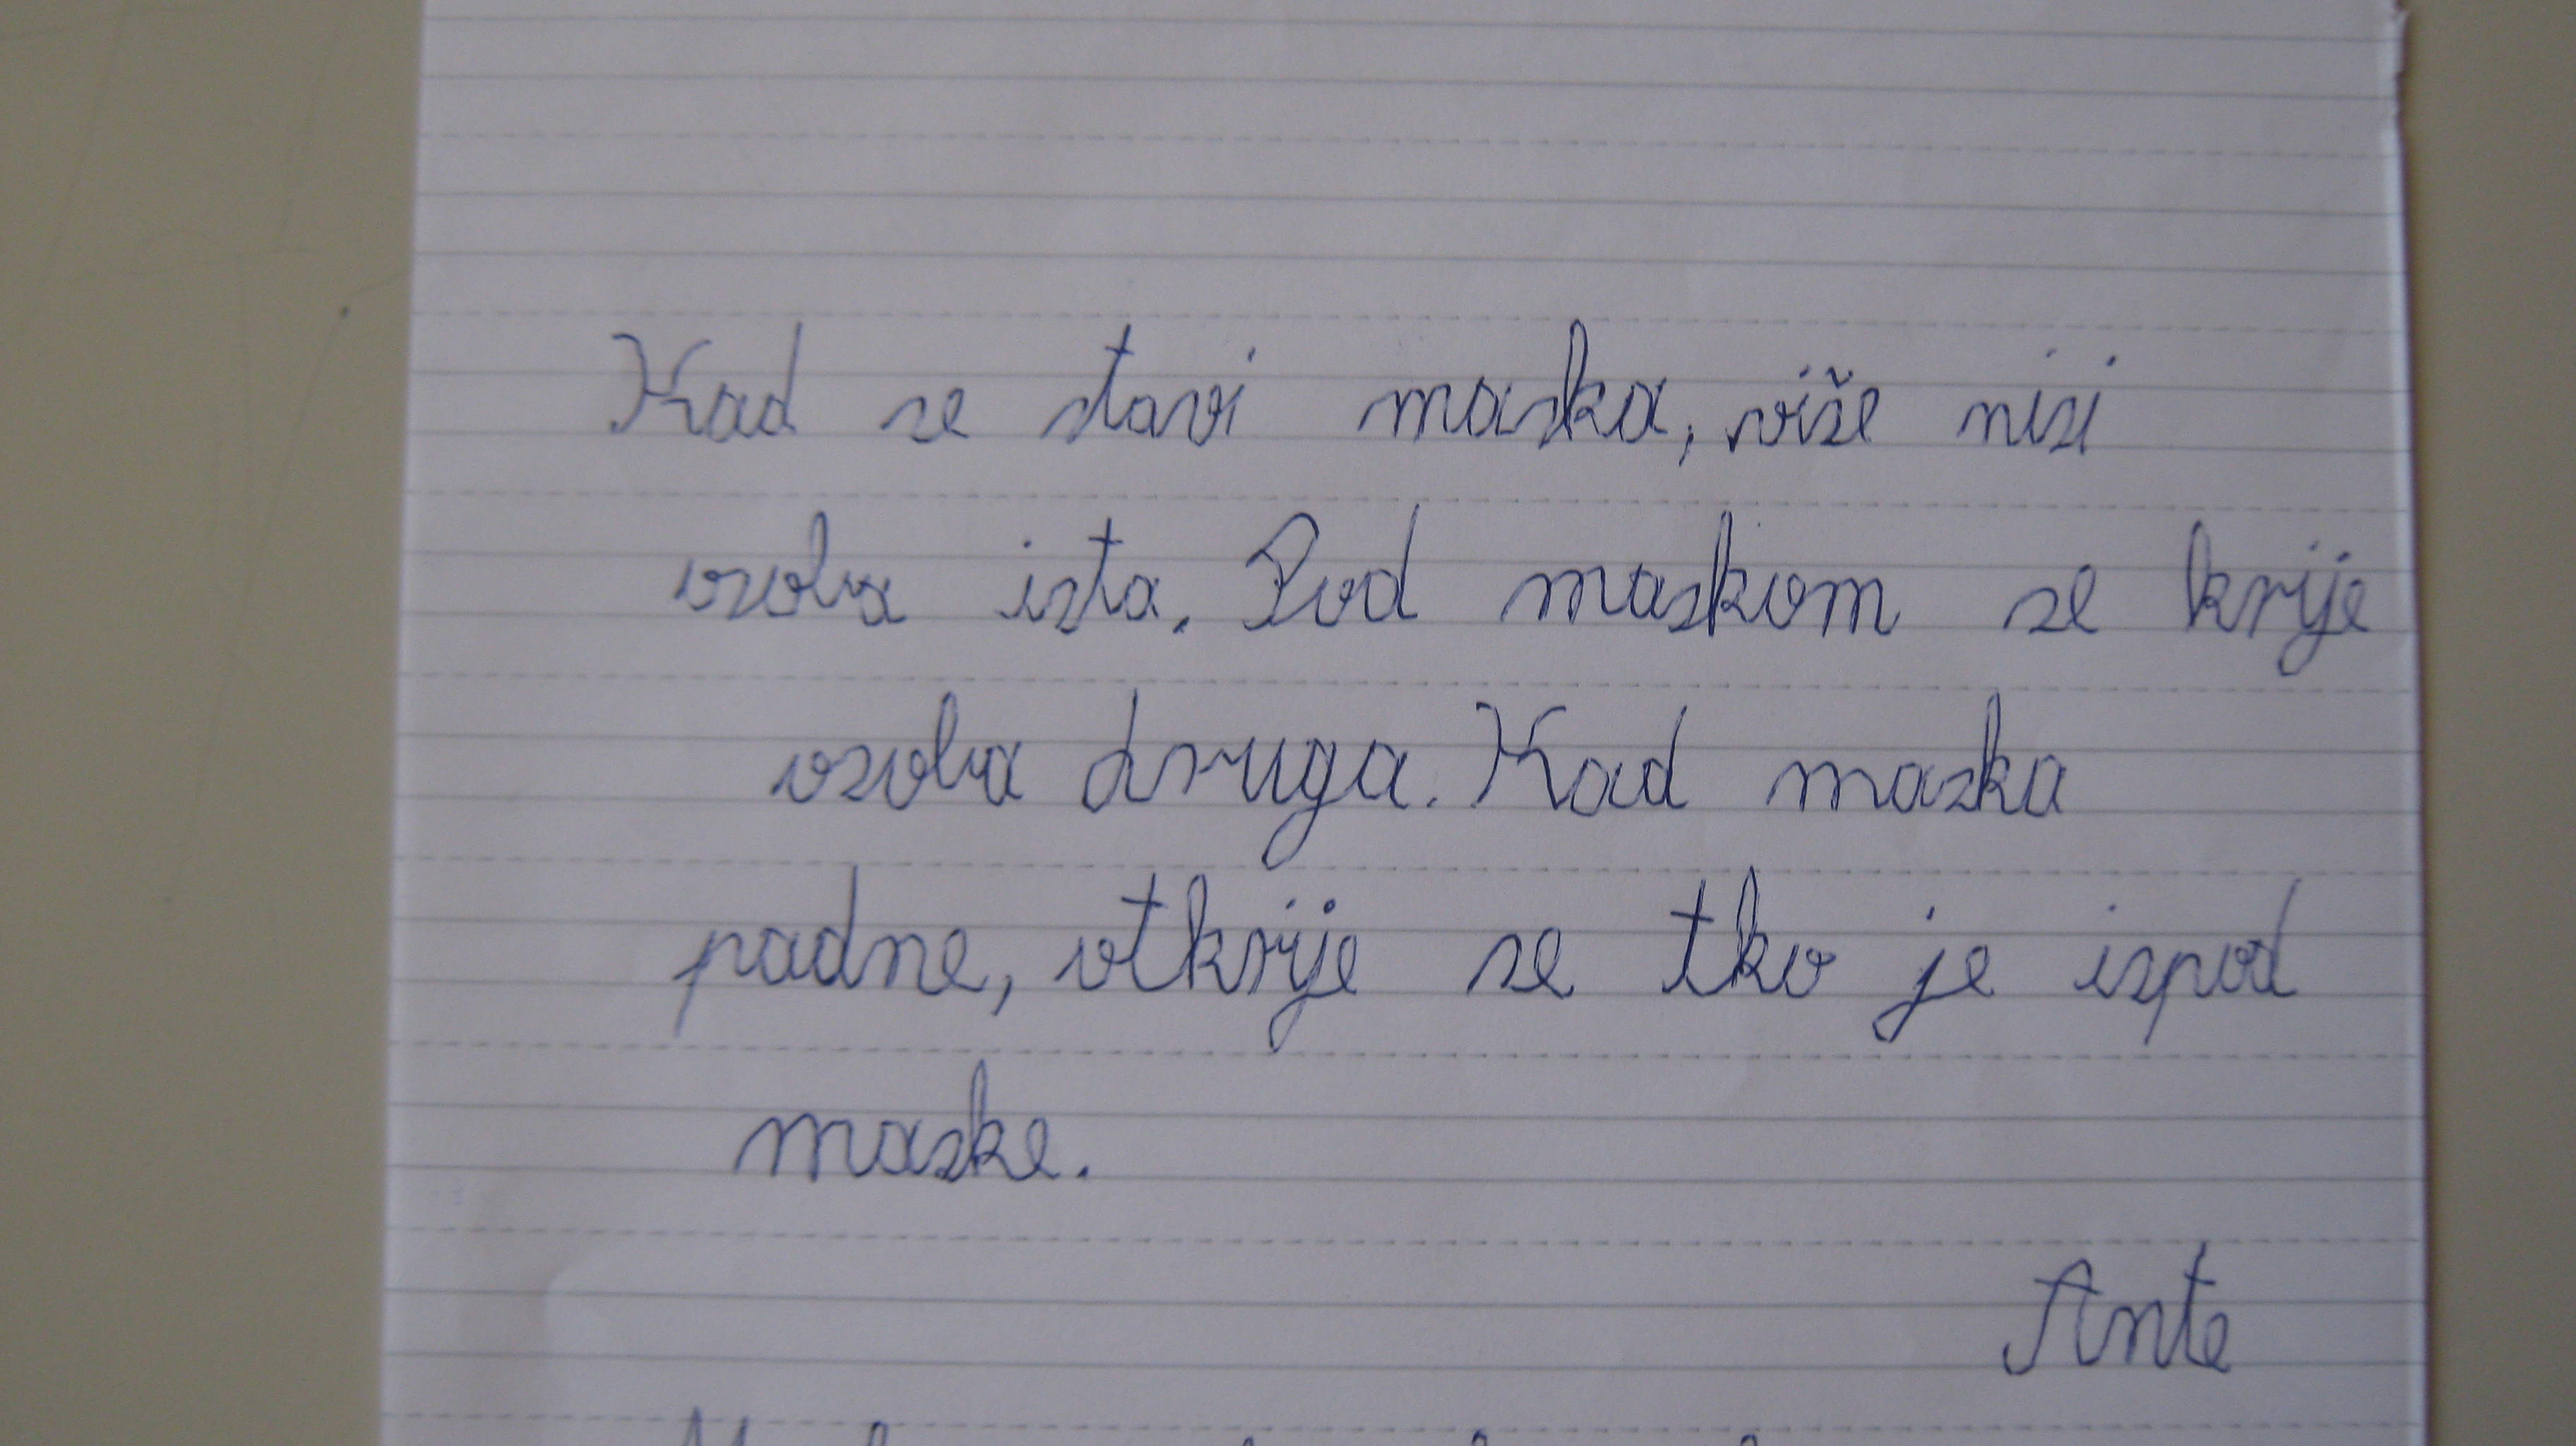 Kad se stavi maska, više nisi
osoba ista. Pod maskom se krije
osoba druga. Kad maska
padne, otkrije se tko je ispod
maske.
Ante